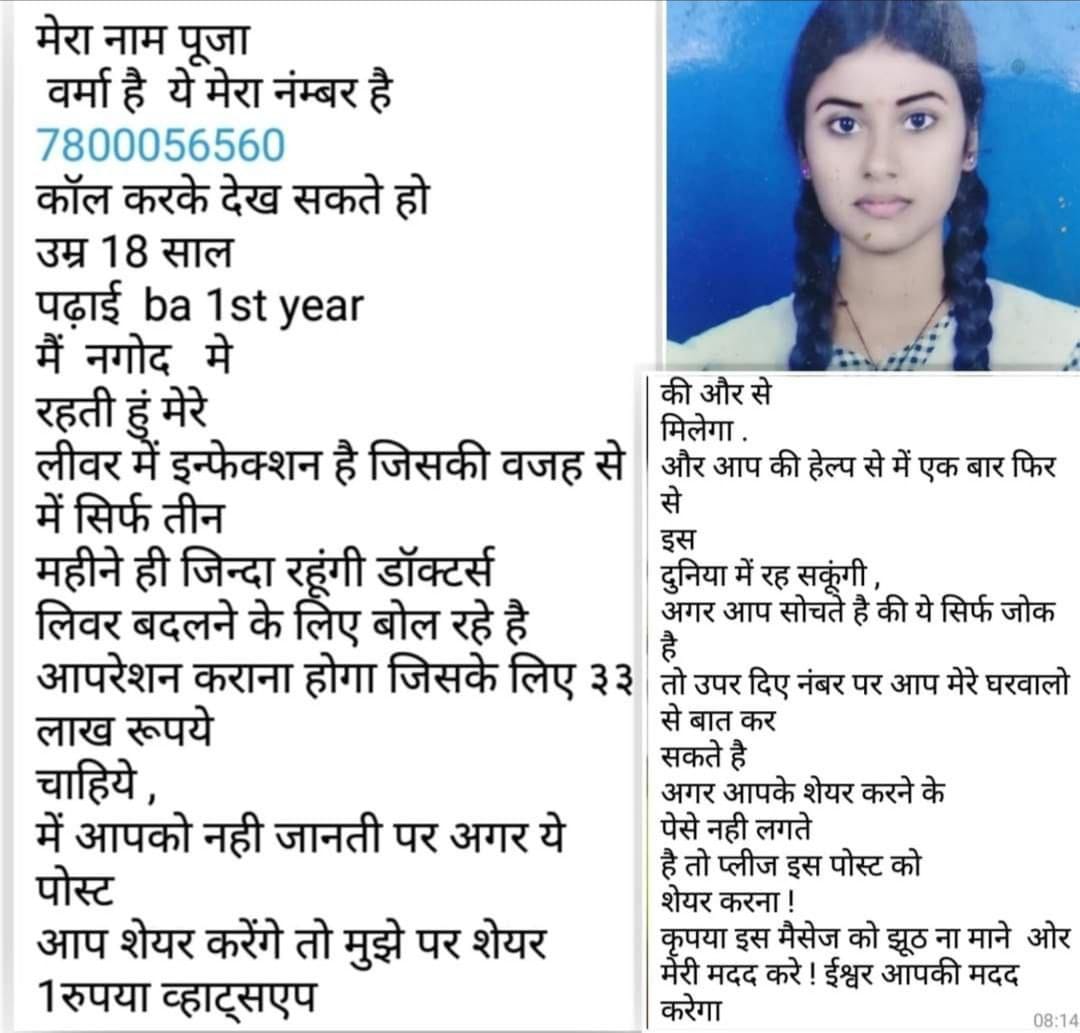 मेरा नाम पूजा
वर्मा है ये मेरा नंम्बर है
7800056560
कॉल करके देख सकते हो
उम्र 18 साल
पढ़ाई ba 1st year
मैं नगोद मे
रहती हुं मेरे
लीवर में इन्फेक्शन है जिसकी वजह से
में सिर्फ तीन
महीने ही जिन्दा रहूंगी डॉक्टर्स
लिवर बदलने के लिए बोल रहे है
आपरेशन कराना होगा जिसके लिए ३३
लाख रूपये
चाहिये ,
में आपको नही जानती पर अगर ये
पोस्ट
आप शेयर करेंगे तो मुझे पर शेयर
1रुपया व्हाट्सएप
की और से
मिलेगा .
और आप की हेल्प से में एक बार फिर
से
इस
दुनिया में रह सकूंगी ,
अगर आप सोचते है की ये सिर्फ जोक
है
तो उपर दिए नंबर पर आप मेरे घरवालो
से बात कर
सकते है
अगर आपके शेयर करने के
पेसे नही लगते
है तो प्लीज इस पोस्ट को
शेयर करना !
कृपया इस मैसेज को झूठ ना माने ओर
मेरी मदद करे ! ईश्वर आपकी मदद
करेगा
08:14